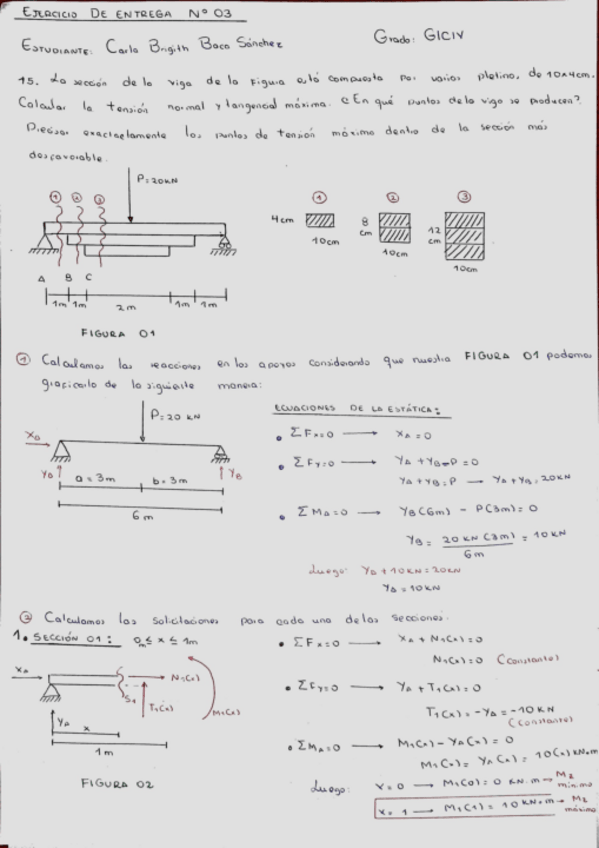 EJERCICIO DE ENTREGA Nº 03
ESTUDIANTE: Carla Brigith Baca Sánchez
Grado: GICIV
15. La sección de la viga de la Figura está compuesta por varias pletinas de 10x4cm.
Calcular la tensión normal y tangencial máxima. ¿En qué puntos de la viga se producen?
Precisar exactamente los puntos de tensión máxima dentro de la sección más
desfavorable.
P=20KN
1 2 3
1 2 3
4cm
10cm
8
cm
10cm
12
cm
10cm
A B C
1m 1m 2m 1m 1m
FIGURA 01
1 Calculamos las reacciones en los apoyos considerando que nuestra FIGURA 01 podemos
graficarlo de la siguiente manera:
P=20 KN
XA
YA
a=3m
b=3m
YB
6m
ECUACIONES DE LA ESTÁTICA:
• ΣFx=0 → XA=0
• ΣFy=0 → YA+YB-P=0
YA+YB=P → YA+YB=20KN
• ΣMA=0 → YB(6m) - P(3m)=0
YB= 20KN(3m) = 10KN
6m
Luego: YA+10KN=20KN
YA=10KN
2 Calculamos las solicitaciones para cada una de las secciones.
1. SECCIÓN 01: 0m ≤ x ≤ 1m
XA
N1(x)
S1
T1(x)
M1(x)
YA
x
1m
FIGURA 02
• ΣFx=0 → XA+N1(x)=0
N1(x)=0 (constante)
• ΣFy=0 → YA+T1(x)=0
T1(x)=-YA=-10KN
(constante)
• ΣMA=0 → M1(x)-YA(x)=0
M1(x)=YA(x)=10(x)KN.m
Luego: x=0 → M1(0)=0 KN.m → MZ
mínimo
x=1 → M1(1)=10KN.m → MZ
máximo